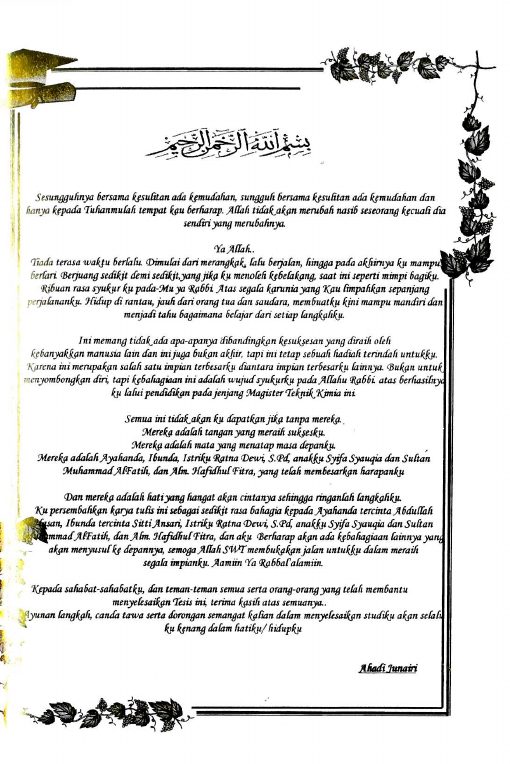 بسم الله الرحمن الرحيم
Sesungguhnya bersama kesulitan ada kemudahan, sungguh bersama kesulitan ada kemudahan dan
hanya kepada Tuhanmulah tempat kau berharap. Allah tidak akan merubah nasib seseorang kecuali dia
sendiri yang merubahnya.
Ya Allah..
Tiada terasa waktu berlalu. Dimulai dari merangkak, lalu berjalan, hingga pada akhirnya ku mampu
berlari. Berjuang sedikit demi sedikit,yang jika ku menoleh kebelakang, saat ini seperti mimpi bagiku.
Ribuan rasa syukur ku pada-Mu ya Rabbi. Atas segala karunia yang Kau limpahkan sepanjang
perjalananku. Hidup di rantau, jauh dari orang tua dan saudara, membuatku kini mampu mandiri dan
menjadi tahu bagaimana belajar dari setiap langkahku.
Ini memang tidak ada apa-apanya dibandingkan kesuksesan yang diraih oleh
kebanyakkan manusia lain dan ini juga bukan akhir, tapi ini tetap sebuah hadiah terindah untukku.
Karena ini merupakan salah satu impian terbesarku diantara impian terbesarku lainnya. Bukan untuk
menyombongkan diri, tapi kebahagiaan ini adalah wujud syukurku pada Allahu Rabbi. atas berhasilnya
ku lalui pendidikan pada jenjang Magister Teknik Kimia ini.
Semua ini tidak akan ku dapatkan jika tanpa mereka.
Mereka adalah tangan yang meraih suksesku.
Mereka adalah mata yang menatap masa depanku.
Mereka adalah Ayahanda, Ibunda, Istriku Ratna Dewi, S.Pd, anakku Syifa Syauqia dan Sultan
Muhammad AlFatih, dan Alm. Hafidhul Fitra, yang telah membesarkan harapanku
Dan mereka adalah hati yang hangat akan cintanya sehingga ringanlah langkahku.
Ku persembahkan karya tulis ini sebagai sedikit rasa bahagia kepada Ayahanda tercinta Abdullah
Ibunda tercinta Sitti Ansari, Istriku Ratna Dewi, S.Pd, anakku Syifa Syauqia dan Sultan
AlFatih, dan Alm. Hafidhul Fitra, dan aku Berharap akan ada kebahagiaan lainnya yang
akan menyusul ke depannya, semoga Allah SWT membukakan jalan untukku dalam meraih
segala impianku. Aamiin Ya Rabbal'alamiin.
Kepada sahabat-sahabatku, dan teman-teman semua serta orang-orang yang telah membantu
menyelesaikan Tesis ini, terima kasih atas semuanya..
Ayunan langkah, canda tawa serta dorongan semangat kalian dalam menyelesaikan studiku akan selalu
ku kenang dalam hatiku/ hidupku
Ahadi Junairi